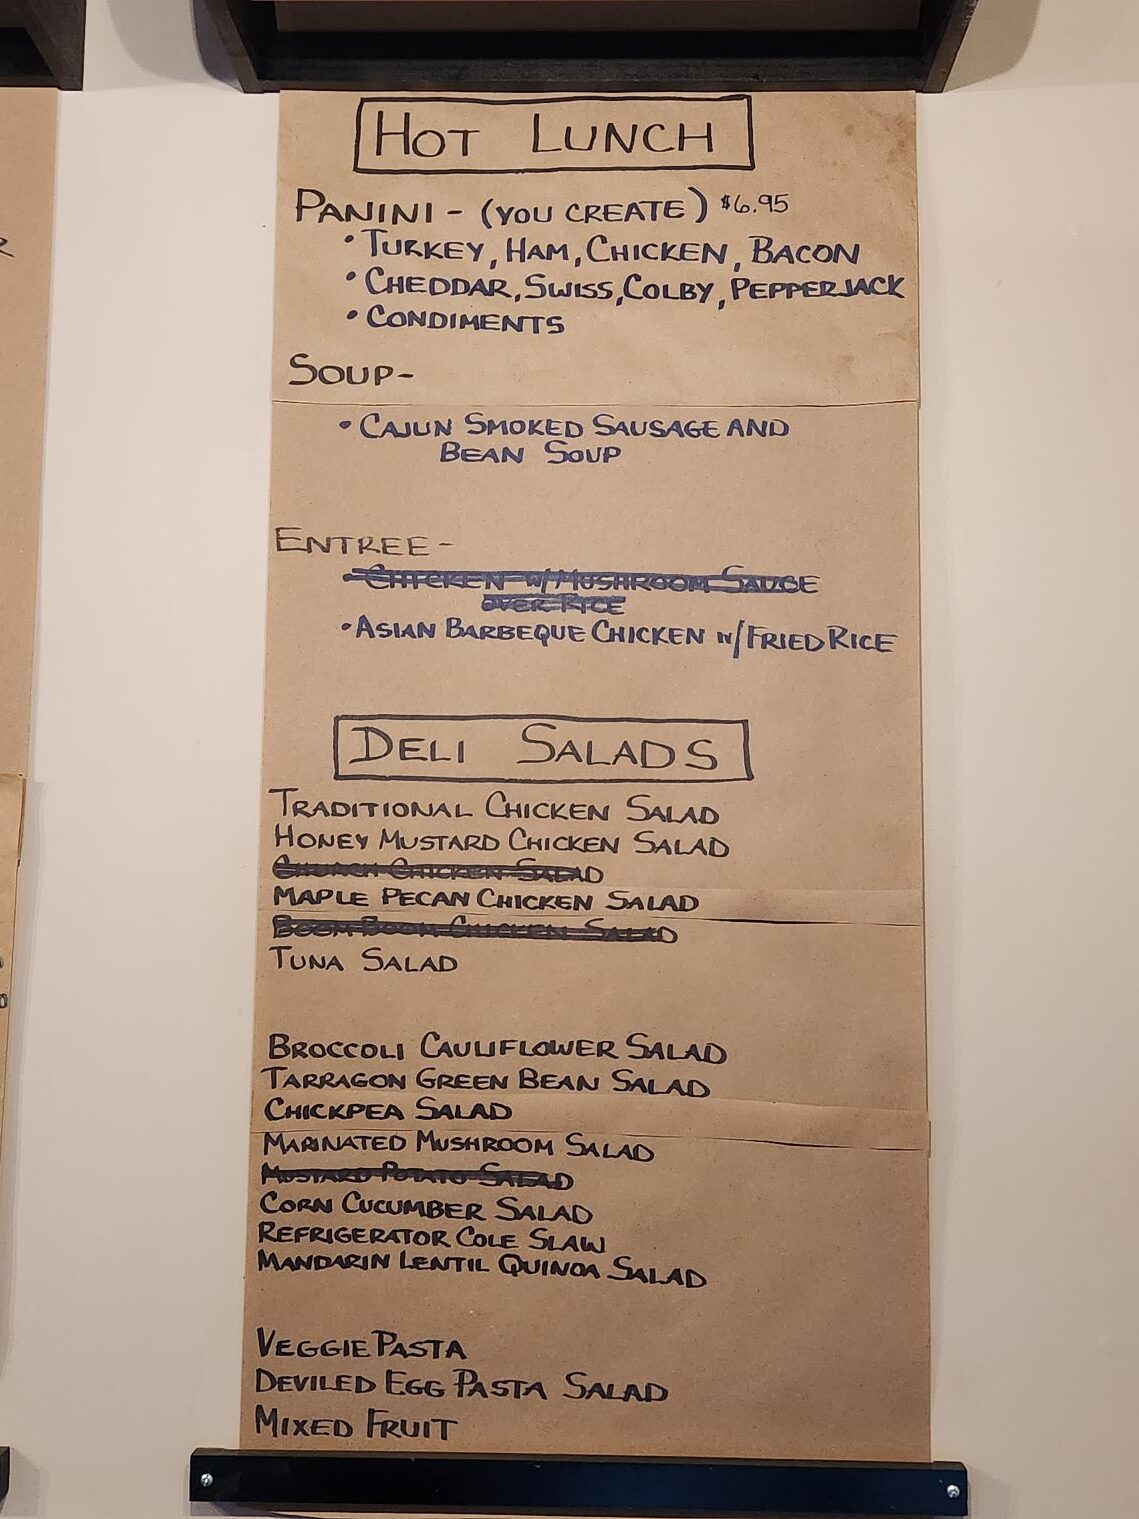 HOT LUNCH
PANINI - (YOU CREATE) $6.95
• TURKEY, HAM, CHICKEN, BACON
• CHEDDAR, SWISS, COLBY, PEPPERJACK
• CONDIMENTS
SOUP-
• CAJUN SMOKED SAUSAGE AND
BEAN SOUP
ENTREE -
• CHICKEN W/ MUSHROOM SAUCE
OVER RICE
• ASIAN BARBEQUE CHICKEN W/ FRIED RICE
DELI SALADS
TRADITIONAL CHICKEN SALAD
HONEY MUSTARD CHICKEN SALAD
CHICKEN SALAD
MAPLE PECAN CHICKEN SALAD
BOOM BOOM CHICKEN SALAD
TUNA SALAD
BROCCOLI CAULIFLOWER SALAD
TARRAGON GREEN BEAN SALAD
CHICKPEA SALAD
MARINATED MUSHROOM SALAD
MUSTARD POTATO SALAD
CORN CUCUMBER SALAD
REFRIGERATOR COLE SLAW
MANDARIN LENTIL QUINOA SALAD
VEGGIE PASTA
DEVILED EGG PASTA SALAD
MIXED FRUIT